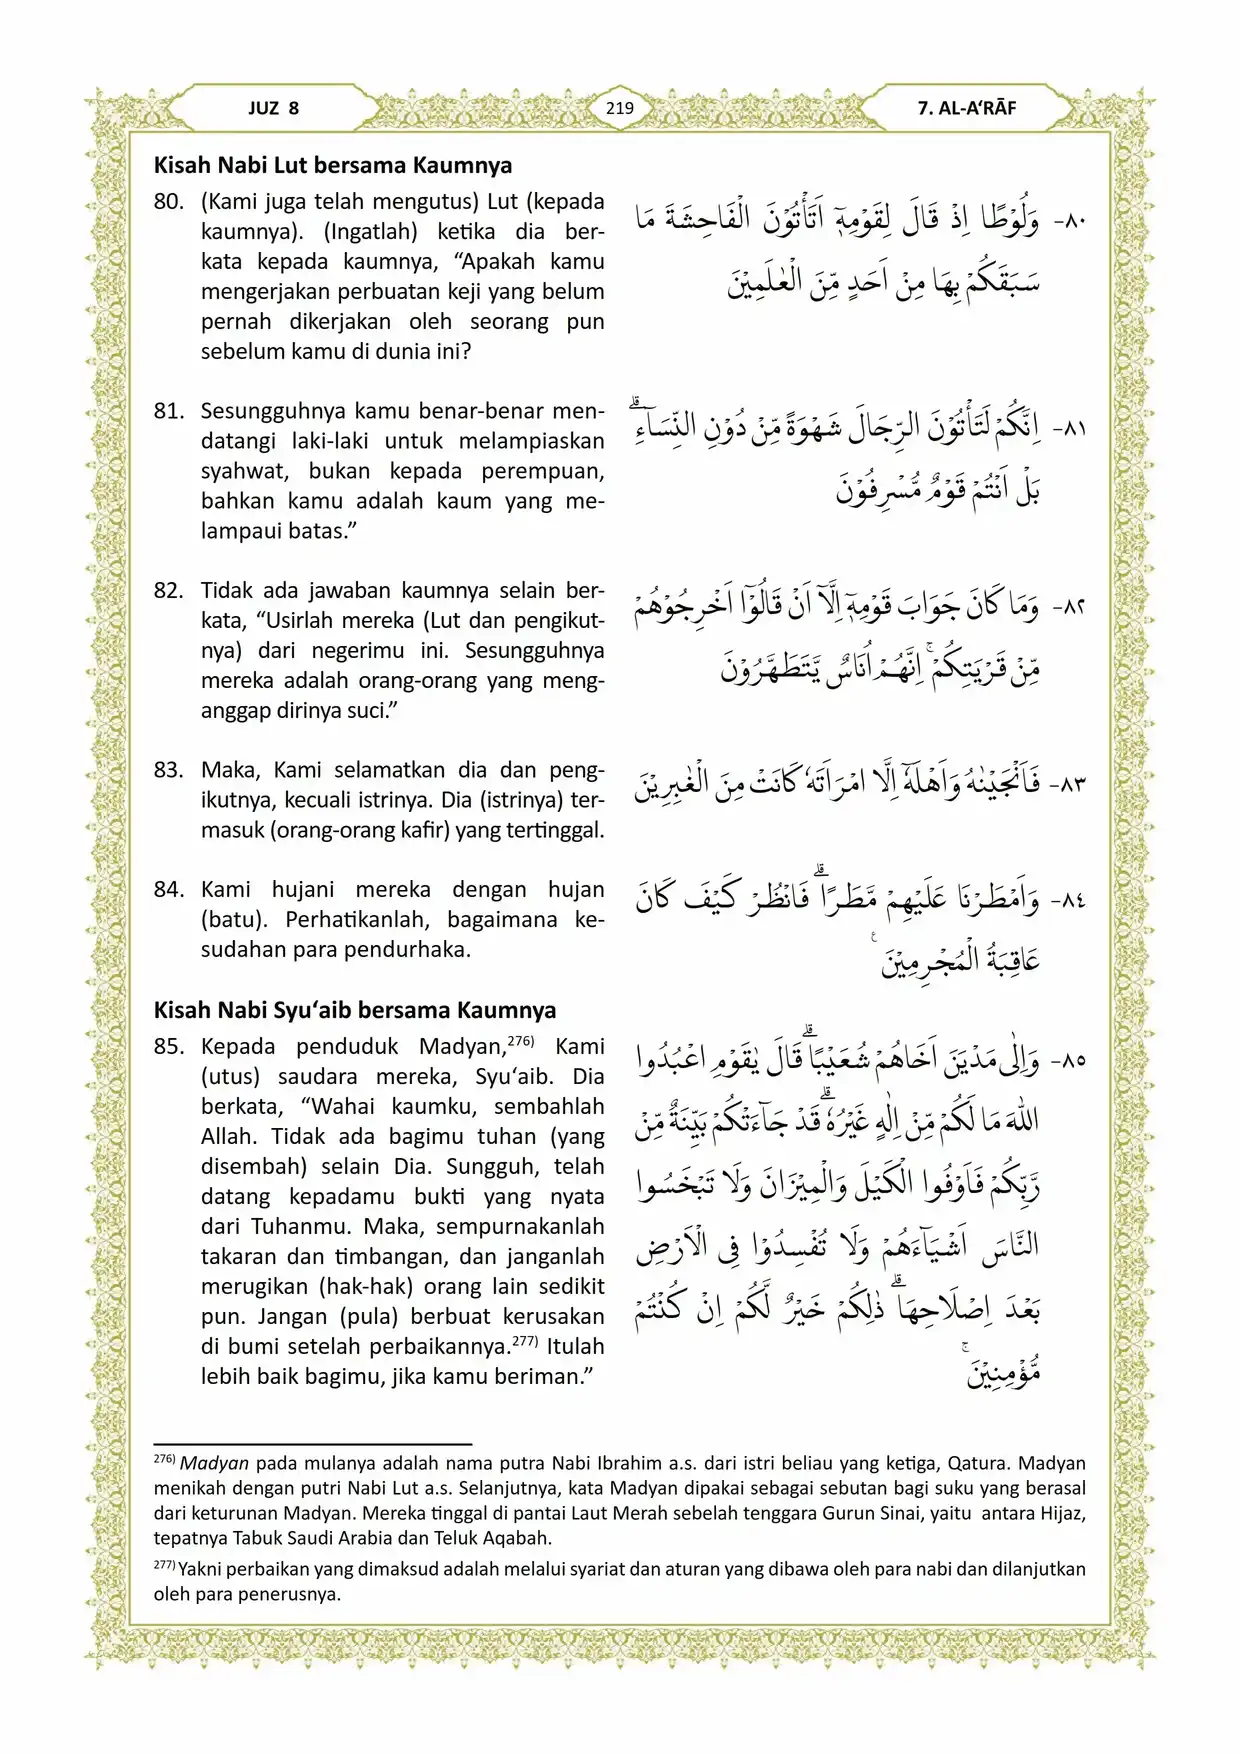 JUZ 8
219
7. AL-A‘RĀF
Kisah Nabi Lut bersama Kaumnya
80. (Kami juga telah mengutus) Lut (kepada
kaumnya). (Ingatlah) ketika dia ber-
kata kepada kaumnya, “Apakah kamu
mengerjakan perbuatan keji yang belum
pernah dikerjakan oleh seorang pun
sebelum kamu di dunia ini?
٨٠- وَلُوْطًا اِذْ قَالَ لِقَوْمِهٖٓ اَتَأْتُوْنَ الْفَاحِشَةَ مَا
سَبَقَكُمْ بِهَا مِنْ اَحَدٍ مِّنَ الْعٰلَمِيْنَ
81. Sesungguhnya kamu benar-benar men-
datangi laki-laki untuk melampiaskan
syahwat, bukan kepada perempuan,
bahkan kamu adalah kaum yang me-
lampaui batas.”
٨١- اِنَّكُمْ لَتَأْتُوْنَ الرِّجَالَ شَهْوَةً مِّنْ دُوْنِ النِّسَاۤءِۗ
بَلْ اَنْتُمْ قَوْمٌ مُّسْرِفُوْنَ
82. Tidak ada jawaban kaumnya selain ber-
kata, “Usirlah mereka (Lut dan pengikut-
nya) dari negerimu ini. Sesungguhnya
mereka adalah orang-orang yang meng-
anggap dirinya suci.”
٨٢- وَمَا كَانَ جَوَابَ قَوْمِهٖٓ اِلَّآ اَنْ قَالُوْٓا اَخْرِجُوْهُمْ
مِّنْ قَرْيَتِكُمْۚ اِنَّهُمْ اُنَاسٌ يَّتَطَهَّرُوْنَ
83. Maka, Kami selamatkan dia dan peng-
ikutnya, kecuali istrinya. Dia (istrinya) ter-
masuk (orang-orang kafir) yang tertinggal.
٨٣- فَاَنْجَيْنٰهُ وَاَهْلَهٗٓ اِلَّا امْرَاَتَهٗ كَانَتْ مِنَ الْغٰبِرِيْنَ
84. Kami hujani mereka dengan hujan
(batu). Perhatikanlah, bagaimana ke-
sudahan para pendurhaka.
٨٤- وَاَمْطَرْنَا عَلَيْهِمْ مَّطَرًاۗ فَانْظُرْ كَيْفَ كَانَ
عَاقِبَةُ الْمُجْرِمِيْنَ ࣖ
Kisah Nabi Syu‘aib bersama Kaumnya
85. Kepada penduduk Madyan,276) Kami
(utus) saudara mereka, Syu‘aib. Dia
berkata, “Wahai kaumku, sembahlah
Allah. Tidak ada bagimu tuhan (yang
disembah) selain Dia. Sungguh, telah
datang kepadamu bukti yang nyata
dari Tuhanmu. Maka, sempurnakanlah
takaran dan timbangan, dan janganlah
merugikan (hak-hak) orang lain sedikit
pun. Jangan (pula) berbuat kerusakan
di bumi setelah perbaikannya.277) Itulah
lebih baik bagimu, jika kamu beriman.”
٨٥- وَاِلٰى مَدْيَنَ اَخَاهُمْ شُعَيْبًاۗ قَالَ يٰقَوْمِ اعْبُدُوا
اللّٰهَ مَا لَكُمْ مِّنْ اِلٰهٍ غَيْرُهٗۗ قَدْ جَاۤءَتْكُمْ بَيِّنَةٌ مِّنْ
رَّبِّكُمْ فَاَوْفُوا الْكَيْلَ وَالْمِيْزَانَ وَلَا تَبْخَسُوا
النَّاسَ اَشْيَاۤءَهُمْ وَلَا تُفْسِدُوْا فِى الْاَرْضِ
بَعْدَ اِصْلَاحِهَاۗ ذٰلِكُمْ خَيْرٌ لَّكُمْ اِنْ كُنْتُمْ
مُّؤْمِنِيْنَۚ
276) Madyan pada mulanya adalah nama putra Nabi Ibrahim a.s. dari istri beliau yang ketiga, Qatura. Madyan
menikah dengan putri Nabi Lut a.s. Selanjutnya, kata Madyan dipakai sebagai sebutan bagi suku yang berasal
dari keturunan Madyan. Mereka tinggal di pantai Laut Merah sebelah tenggara Gurun Sinai, yaitu antara Hijaz,
tepatnya Tabuk Saudi Arabia dan Teluk Aqabah.
277) Yakni perbaikan yang dimaksud adalah melalui syariat dan aturan yang dibawa oleh para nabi dan dilanjutkan
oleh para penerusnya.